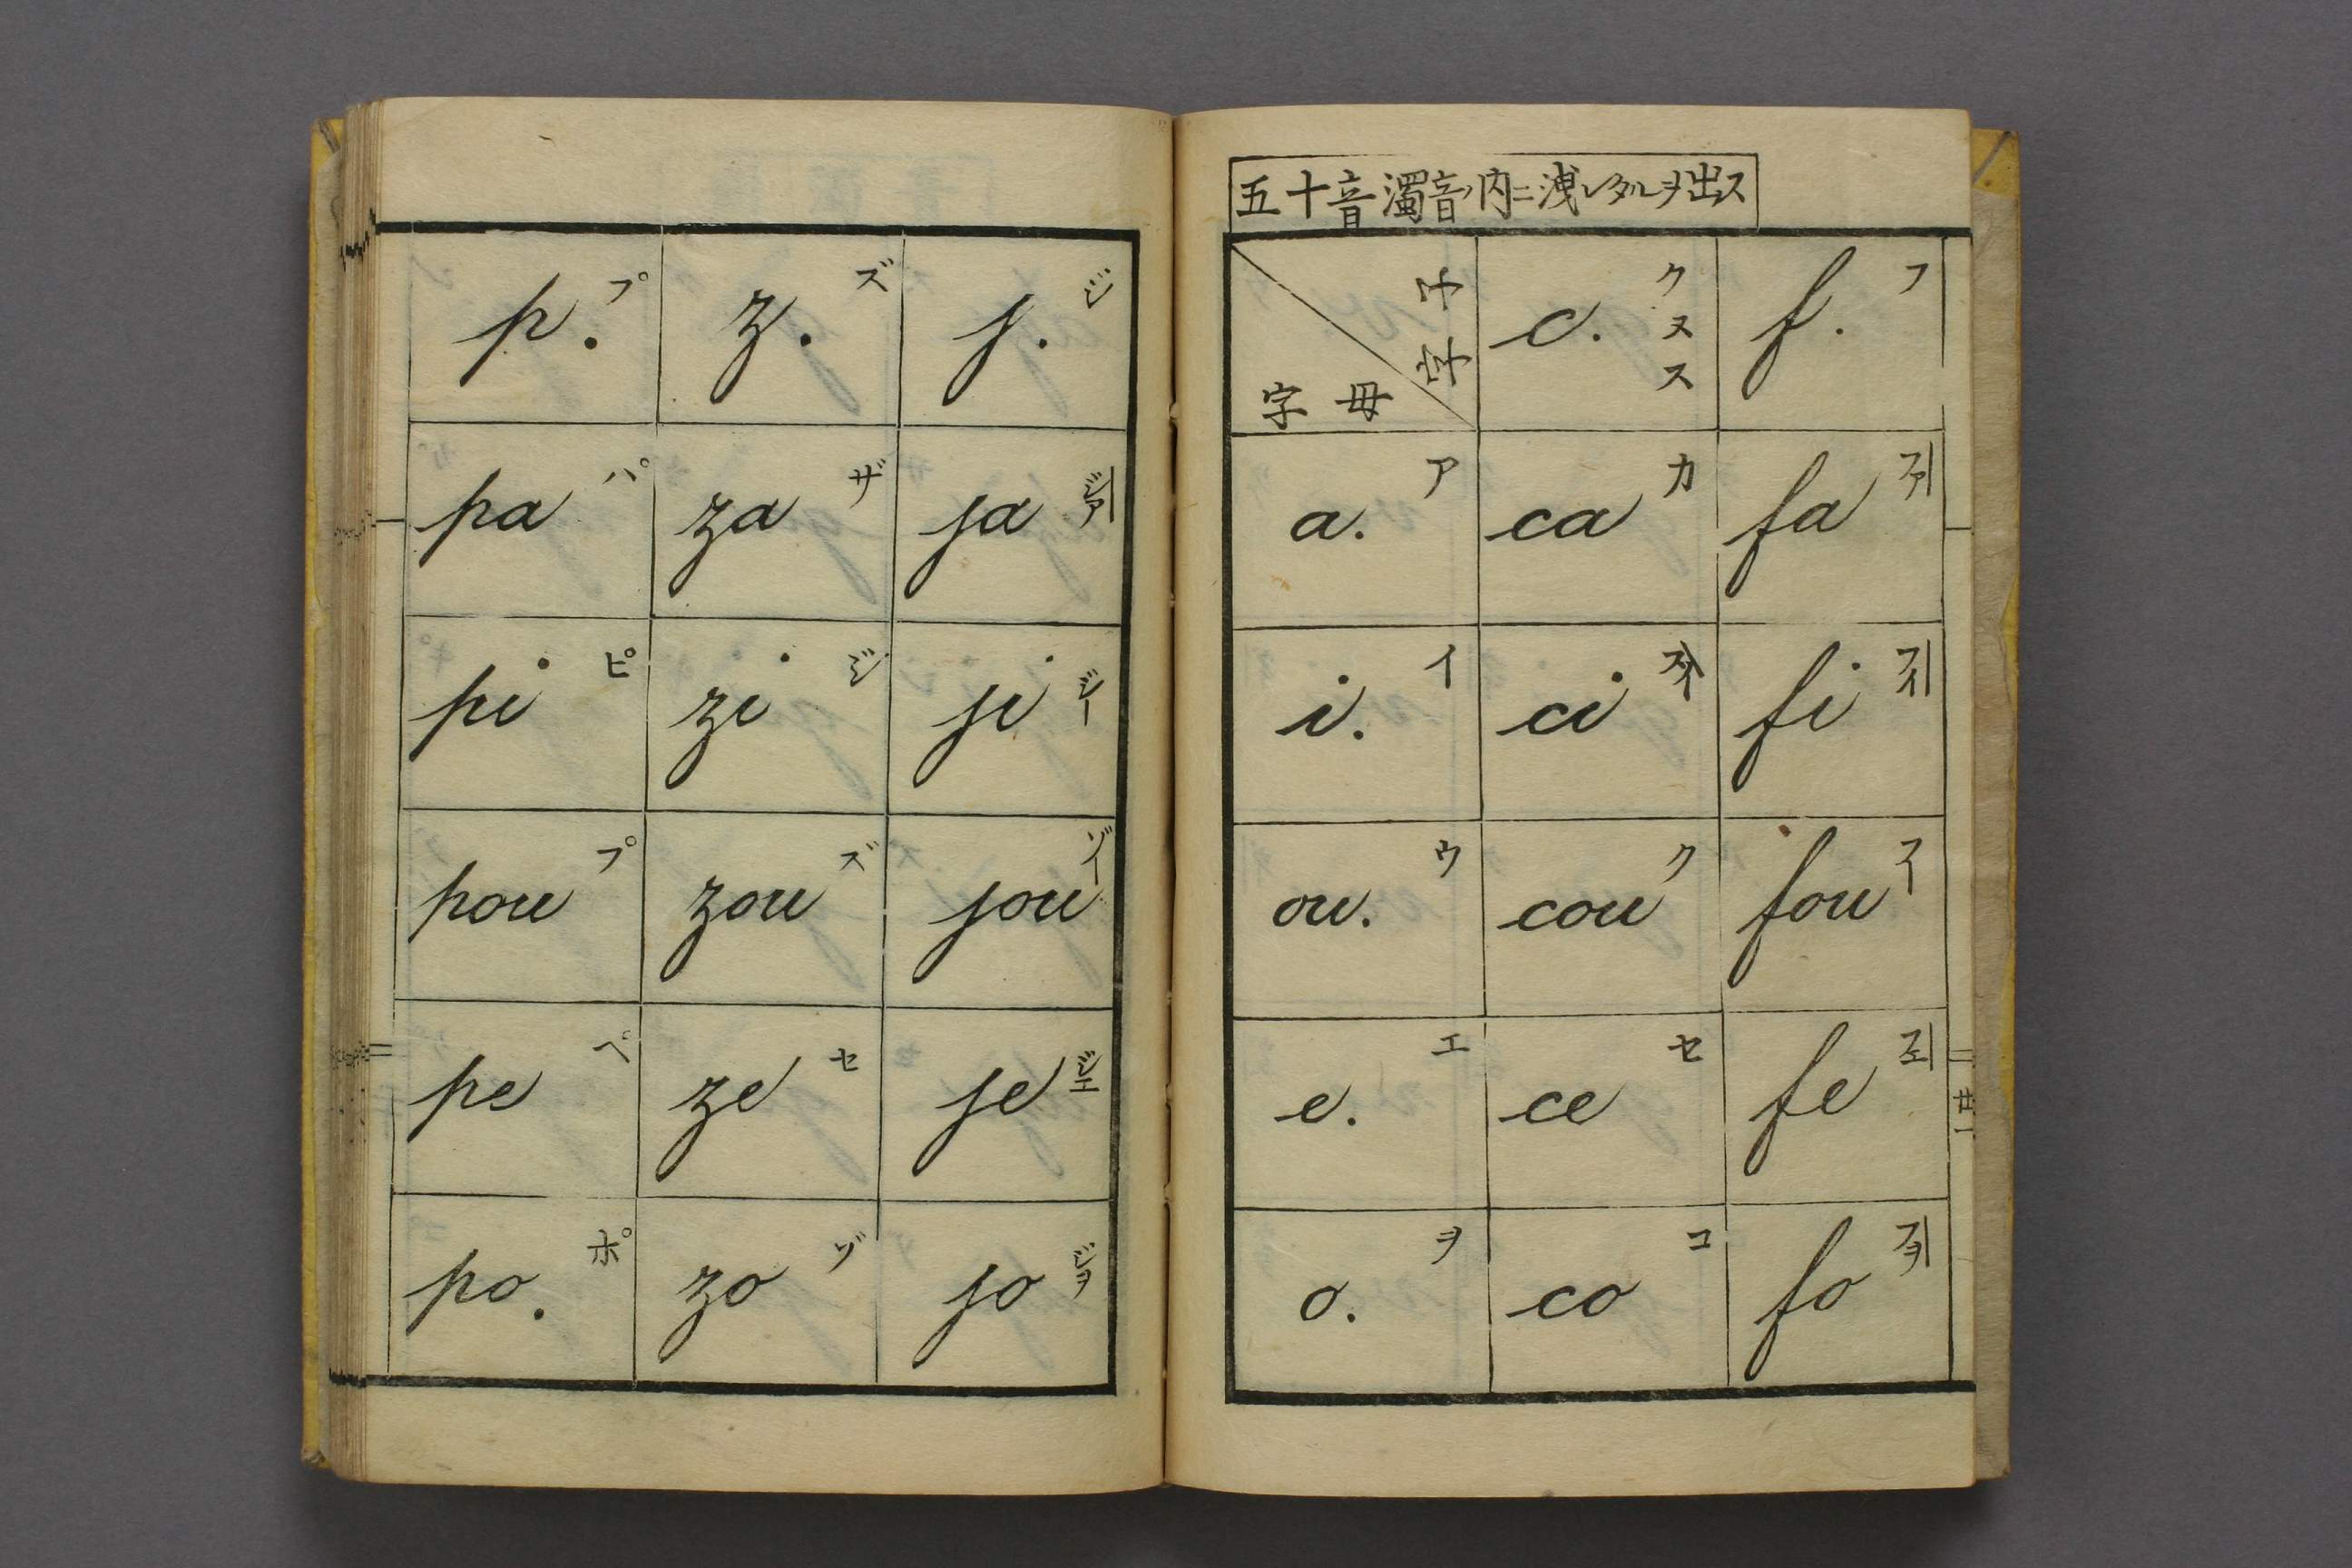 五十音濁音ノ内ニ洩レタルヲ出ス
子字 母字 c. クヌス f. フ
a. ア ca カ fa ファー
i. イ ci スイ fi フイー
ou. ウ cou ク fou フー
e. エ ce セ fe フエー
o. ヲ co コ fo フヲー
廿一
p. プ z. ズ j. ジ
pa パ za ザ ja ジアー
pi ピ zi ジ ji ジー
pou プ zou ズ jou ヅー
pe ペ ze セ je ジエ
po. ポ zo ゾ jo ジヨ